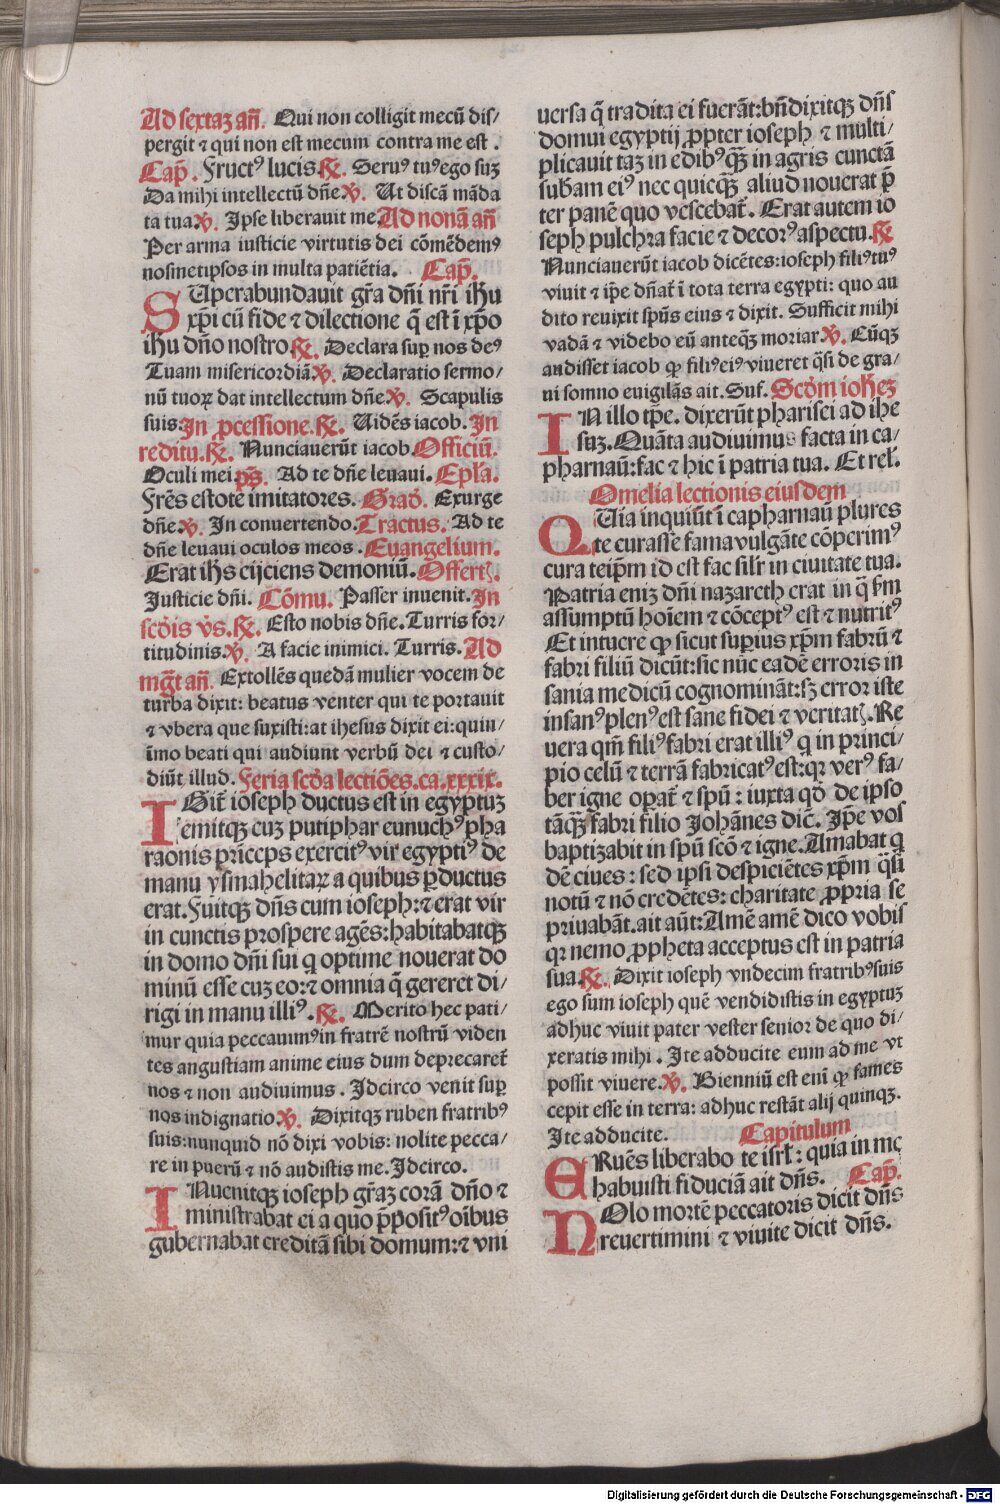 Ad sextaꝫ añ. Qui non colligit mecū dis/
pergit ⁊ qui non est mecum contra me est .
Cap̄. Fructꝰ lucis. ℟. Seruꝰ tuꝰ ego suꝫ
Da mihi intellectū dn̄e ℣. Ut discā māda
ta tua ℣. Ipse liberauit me. Ad nonā añ
Per arma iusticie virtutis dei cōmēdemꝰ
nosmetipsos in multa patiētia. Cap̄.
SUperabundauit gr̄a dn̄i nr̄i ih̄u
xp̄i cū fide ⁊ dilectione q̄ est ī xp̄o
ih̄u dn̄o nostro ℟. Declara suꝑ nos deꝰ
Tuam misericordiā ℣. Declaratio sermo/
nū tuoꝝ dat intellectum dn̄e ℣. Scapulis
suis: In ꝓcessione. ℟. Uidēs iacob. In
reditu. ℟. Nunciauerūt iacob Officiū.
Oculi mei p̄s. Ad te dn̄e leuaui. Epl̄a.
Fr̄es estote imitatores. Grad̄. Exurge
dn̄e ℣. In conuertendo. Tractus. Ad te
dn̄e leuaui oculos meos . Euangelium.
Erat ih̄s eijciens demoniū. Offertꝭ.
Justicie dn̄i. Cōmu. Passer inuenit. In
scd̄is v̄s. ℟. Esto nobis dn̄e. Turris for/
titudinis. ℣. A facie inimici. Turris. Ad
mḡt añ. Extollēs quedā mulier vocem de
turba dixit: beatus venter qui te portauit
⁊ vbera que suxisti: at ihesus dixit ei: quin/
īmo beati qui audiunt verbū dei ⁊ custo/
diūt illud. Feria scd̄a lectiōes. ca. xxxix.
IGit̄ ioseph ductus est in egyptuꝫ
emitqꝫ cuꝫ putiphar eunuchꝰ pha
raonis princeps exercitꝰ vir egyptiꝰ de
manu ysmahelitaꝝ a quibus ꝑductus
erat. Fuitqꝫ dn̄s cum ioseph: ⁊ erat vir
in cunctis prospere agēs: habitabatqꝫ
in domo dn̄i sui q optime nouerat do
minū esse cuꝫ eo: ⁊ omnia q̄ gereret di/
rigi in manu illiꝰ. ℟. Merito hec pati/
mur quia peccauimꝰ in fratrē nostrū viden
tes angustiam anime eius dum deprecaret̄
nos ⁊ non audiuimus . Idcirco venit suꝑ
nos indignatio ℣. Dixitqꝫ ruben fratribꝰ
suis: nunquid nō dixi vobis: nolite pecca/
re in puerū ⁊ nō audistis me. Idcirco.
INuenitqꝫ ioseph gr̄aꝫ corā dn̄o ⁊
ministrabat ei a quo p̄positꝰ oībus
gubernabat creditā sibi domum: ⁊ vni
uersa q̄ tradita ei fuerāt: bn̄dixitqꝫ dn̄s
domui egyptij ꝓpter ioseph ⁊ multi/
plicauit taꝫ in edibꝰ qꝫ̄ in agris cunctā
sub̄am eiꝰ nec quicqꝫ̄ aliud nouerat p̄
ter panē quo vescebat̄. Erat autem io
seph pulchra facie ⁊ decorꝰ aspectu. ℟
Nunciauerūt iacob dicētes: ioseph filiꝰ tuꝰ
viuit ⁊ ip̄e dn̄at̄ ī tota terra egypti: quo au
dito reuixit sp̄us eius ⁊ dixit. Sufficit mihi
vadā ⁊ videbo eū anteqꝫ̄ moriar ℣. Cūqꝫ
audisset iacob ꝙ filiꝰ eiꝰ viueret q̄si de gra/
ui somno euigilās ait. Suf. Scd̄m ioh̄eꝫ
IN illo tp̄e. dixerūt pharisei ad ihe
suꝫ. Quāta audiuimus facta in ca/
pharnaū: fac ⁊ hic ī patria tua. Et rel̄.
Omelia lectionis eiusdem
QUia inquiūt ī capharnaū plures
te curasse fama vulgāte cōperimꝰ
cura teip̄m id est fac sil̄r in ciuitate tua.
Patria eniꝫ dn̄i nazareth erat in q̄ fm̄
assumptū hoīem ⁊ cōceptꝰ est ⁊ nutritꝰ
Et intuere ꝙ sicut superius xp̄m fabrū ⁊
fabri filiū dicūt: sic nūc eadē erroris in
sania medicū cognomināt: sꝫ error iste
insanꝰ plenꝰ est sane fidei ⁊ veritatꝭ. Re
uera qm̄ filiꝰ fabri erat illiꝰ q in princi/
pio celū ⁊ terrā fabricatꝰ est: qꝛ verꝰ fa/
ber igne oꝑat̄ ⁊ sp̄u : iuxta qd̄ de ipso
tāqꝫ̄ fabri filio Johānes dic̄. Ip̄e vos
baptizabit in sp̄u scō ⁊ igne. Amabat q
dē ciues : sed ipsi despiciētes xp̄m q̄si
notū ⁊ nō credētes: charitate ꝓpria se
priuabāt. ait aūt: Amē amē dico vobis
qꝛ nemo ꝓpheta acceptus est in patria
sua. ℟. Dixit ioseph vndecim fratribꝰ suis
ego sum ioseph quē vendidistis in egyptuꝫ
adhuc viuit pater vester senior de quo di/
xeratis mihi . Ite adducite eum ad me vt
possit viuere. ℣. Bienniū est enī ꝙ fames
cepit esse in terra: adhuc restāt alij quinqꝫ.
Ite adducite. Capitulum
ERuēs liberabo te isrl̄: quia in me
habuisti fiduciā ait dn̄s. Cap̄.
NOlo mortē peccatoris dicit dn̄s
reuertimini ⁊ viuite dicit dn̄s.
Digitalisierung gefördert durch die Deutsche Forschungsgemeinschaft - DFG